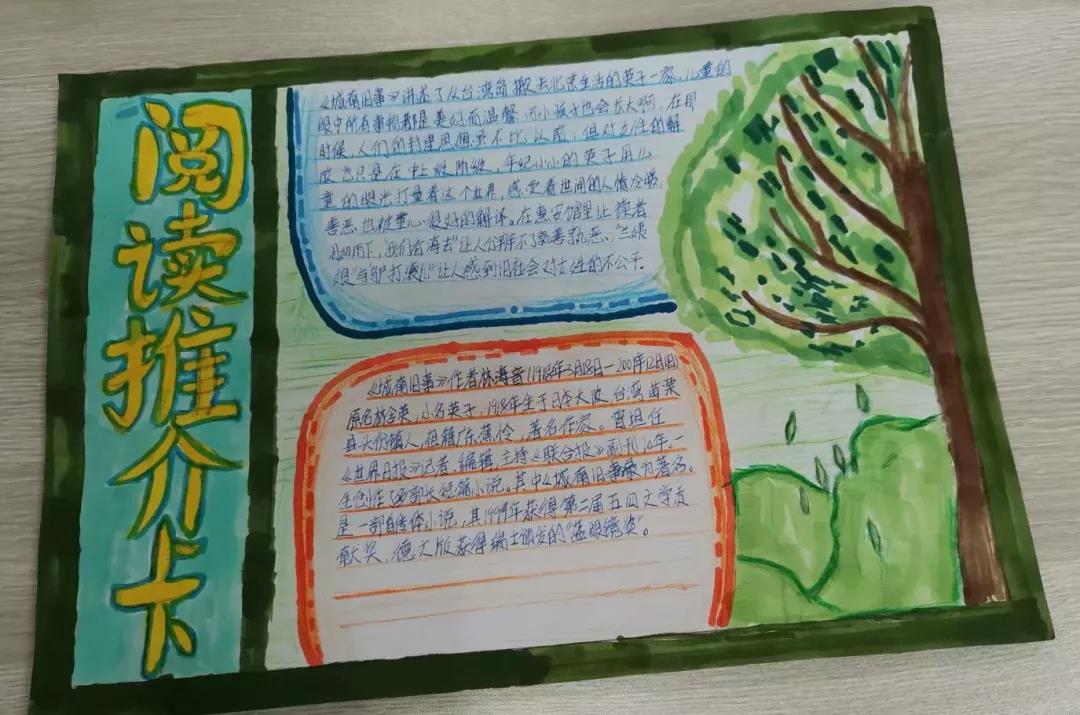 阅读推介卡
《城南旧事》讲述了从台湾省搬去北京生活的英子一家,儿童的
眼中所有事物都是美好而温馨,可小孩子也会长大啊,在那
时候,人们的封建思想虽不比以前,但对女性的解
放也只是在中上级阶级,年纪小小的英子用儿
童的眼光打量着这个世界,感受着世间的人情冷暖,
善恶也被童心很好的解译。在惠安馆里让读者
泪如雨下,"我们看海去"让人分辨不了孰善孰恶,"兰姨
娘"与"驴打滚儿"让人感到旧社会对女性的不公平.
《城南旧事》作者林海音(1918年3月18日—2001年12月1日)
原名林含英,小名英子,1918年生于日本大阪,台湾苗栗
县头份镇人,祖籍广东蕉岭,著名作家。曾担任
《世界日报》记者,编辑,主持《联合报》副刊10年.一
生创作了多部长短篇小说。其中《城南旧事最为著名.
是一部自传体小说,其1999年获得第二届五四文学贡
献奖,德文版获得瑞士颁发的"蓝眼镜奖"。